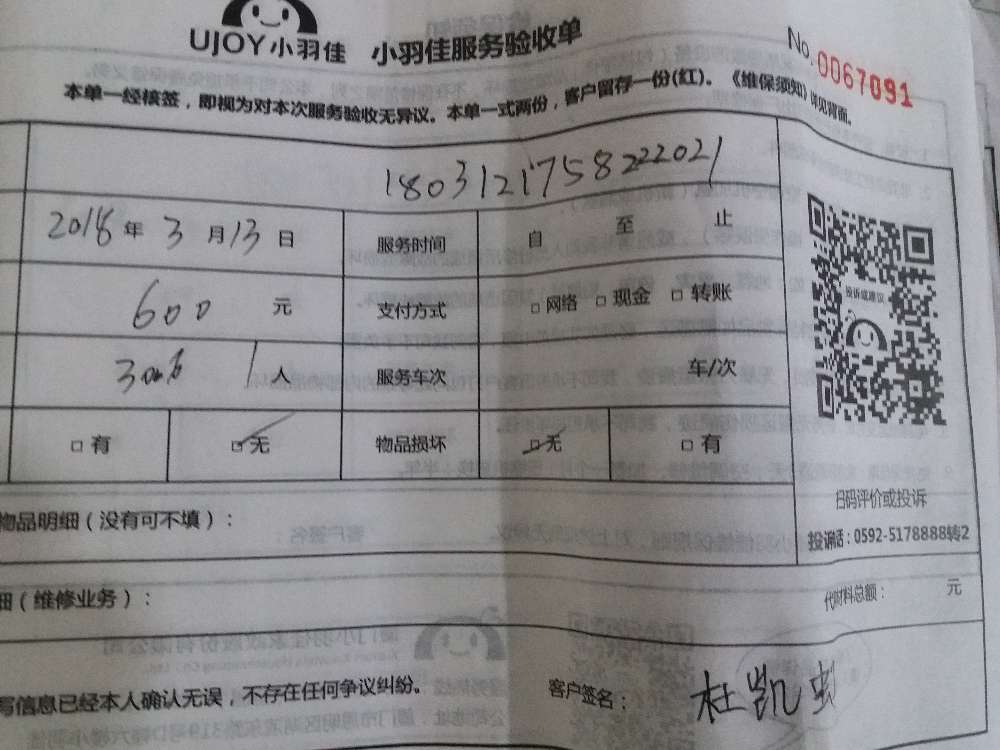 UJOY小羽佳 小羽佳服务验收单
No. 0067091
本单一经核签，即视为对本次服务验收无异议。本单一式两份，客户留存一份(红)。《维保须知》详见背面。
18031217582222021
2018年3月13日 服务时间 自 至 止
600 元 支付方式 □网络 □现金 □转账
1人 服务车次 车/次
□有 □无 物品损坏 □无 □有
投诉或建议
扫码评价或投诉
投诉话：0592-5178888转2
物品明细（没有可不填）：
细（维修业务）：
代材料总额： 元
写信息已经本人确认无误，不存在任何争议纠纷。
客户签名： 杜凯